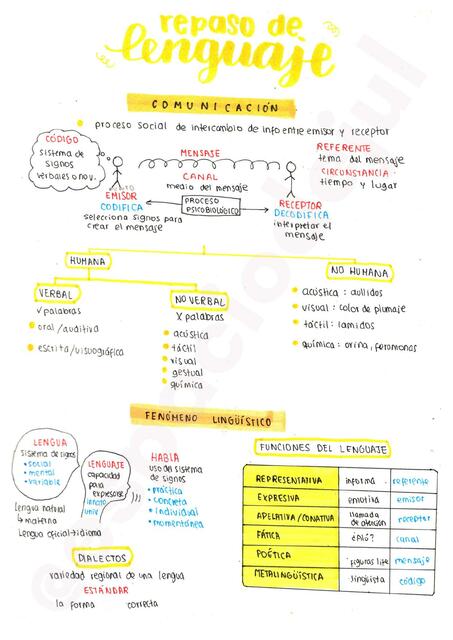 repaso de
lenguaje
COMUNICACIÓN
proceso social de intercambio de info entre emisor y receptor
CÓDIGO
sistema de
signos
verbales o nov.
MENSAJE
CANAL
medio del mensaje
REFERENTE
tema del mensaje
CIRCUNSTANCIA
tiempo y lugar
EMISOR
CODIFICA
selecciona signos para
crear el mensaje
PROCESO
PSICOBIOLÓGICO
RECEPTOR
DECODIFICA
interpretar el
mensaje
HUMANA
NO HUMANA
VERBAL
√ palabras
oral/auditiva
escrita/visuográfica
NO VERBAL
X palabras
acústica
táctil
visual
gestual
química
acústica: aullidos
visual: color de plumaje
táctil: lamidos
química: orina, feromonas
FENÓMENO LINGÜÍSTICO
LENGUA
sistema de signos
social
mental
variable
Lengua natural
↳ materna
Lengua oficial→idioma
LENGUAJE
capacidad
para
expresarse
innato
univ
HABLA
uso del sistema
de signos
práctica
concreta
individual
momentánea
DIALECTOS
variedad regional de una lengua
ESTÁNDAR
la forma correcta
FUNCIONES DEL LENGUAJE
REPRESENTATIVA informa referente
EXPRESIVA emotiva emisor
APELATIVA/CONATIVA llamada de atención receptor
FÁTICA ¿Aló? canal
POÉTICA figuras lite mensaje
METALINGÜÍSTICA lingüista código